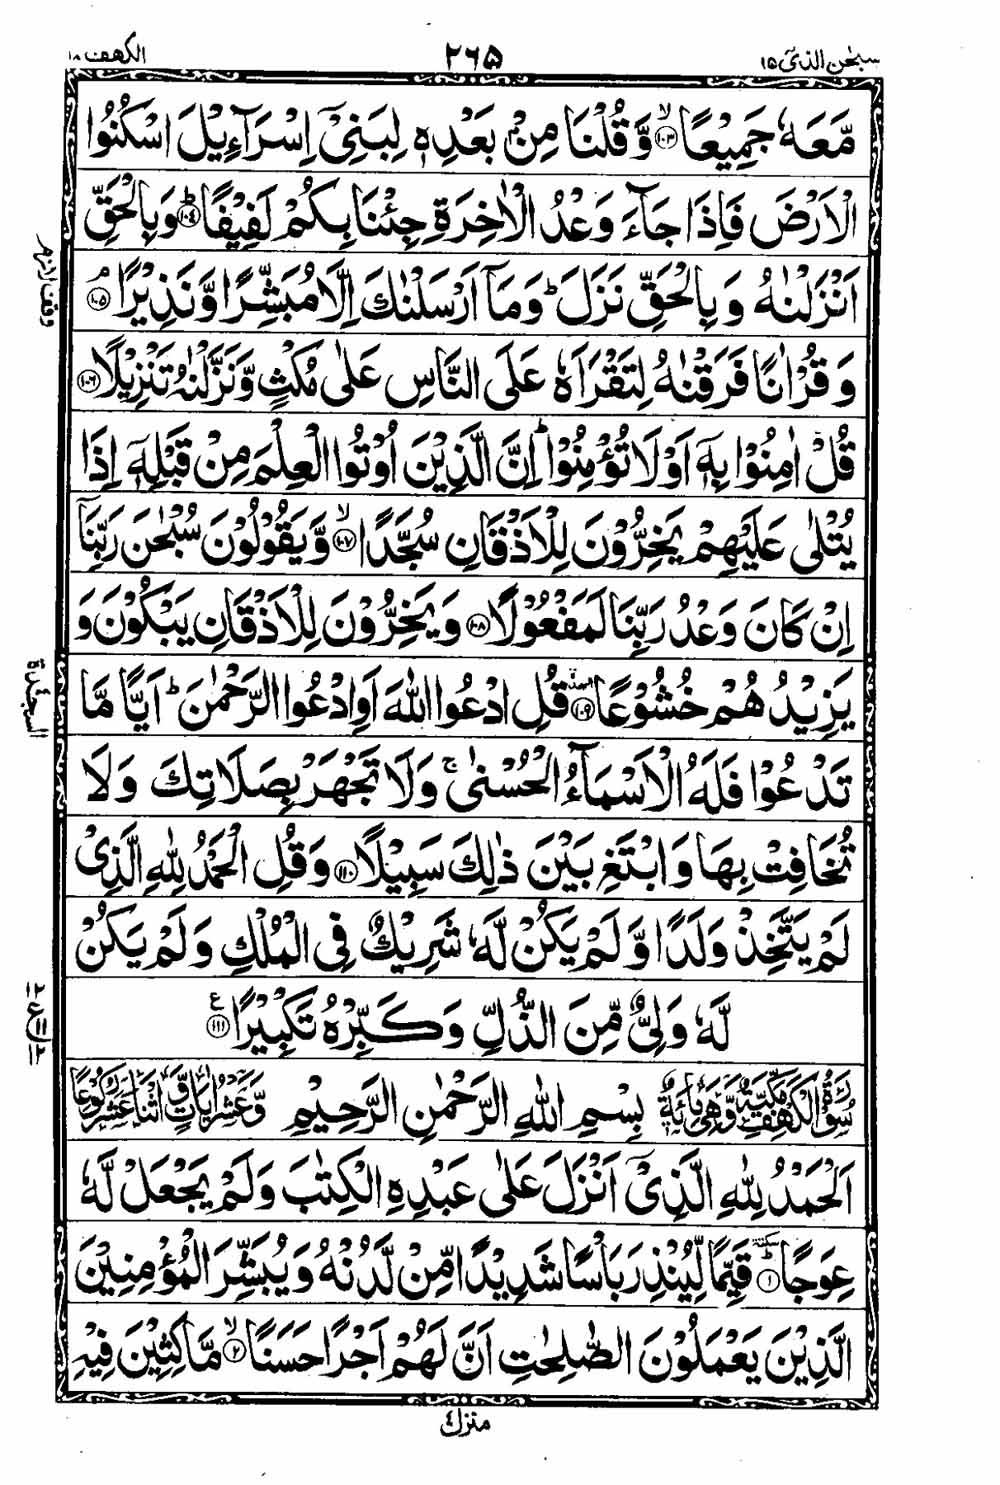 سبحٰن الذی ١٥ ٢٦٥ الكهف ١٨
مَّعَهٗ جَمِيْعًا ۙ‏﴿١٠٣﴾ وَّقُلْنَا مِنْۢ بَعْدِهٖ لِبَنِیْۤ اِسْرَآءِيْلَ اسْكُنُوا
الْاَرْضَ فَاِذَا جَآءَ وَعْدُ الْاٰخِرَةِ جِئْنَا بِكُمْ لَفِيْفًا ؕ﴿١٠٤﴾ وَبِالْحَقِّ
اَنْزَلْنٰهُ وَبِالْحَقِّ نَزَلَ ؕ وَمَاۤ اَرْسَلْنٰكَ اِلَّا مُبَشِّرًا وَّنَذِيْرًا ۘ﴿١٠٥﴾
وقف لازم
وَقُرْاٰنًا فَرَقْنٰهُ لِتَقْرَاَهٗ عَلَی النَّاسِ عَلٰی مُكْثٍ وَّنَزَّلْنٰهُ تَنْزِيْلًا ﴿١٠٦﴾
قُلْ اٰمِنُوْا بِهٖۤ اَوْ لَا تُؤْمِنُوْا ؕ اِنَّ الَّذِيْنَ اُوْتُوا الْعِلْمَ مِنْ قَبْلِهٖۤ اِذَا
يُتْلٰی عَلَيْهِمْ يَخِرُّوْنَ لِلْاَذْقَانِ سُجَّدًا ۙ﴿١٠٧﴾ وَّيَقُوْلُوْنَ سُبْحٰنَ رَبِّنَاۤ
اِنْ كَانَ وَعْدُ رَبِّنَا لَمَفْعُوْلًا ﴿١٠٨﴾ وَيَخِرُّوْنَ لِلْاَذْقَانِ يَبْكُوْنَ وَ
يَزِيْدُهُمْ خُشُوْعًا ﴿١٠٩﴾ قُلِ ادْعُوا اللّٰهَ اَوِ ادْعُوا الرَّحْمٰنَ ؕ اَيًّا مَّا
السجدة
تَدْعُوْا فَلَهُ الْاَسْمَآءُ الْحُسْنٰی ۚ وَلَا تَجْهَرْ بِصَلَاتِكَ وَلَا
تُخَافِتْ بِهَا وَابْتَغِ بَيْنَ ذٰلِكَ سَبِيْلًا ﴿١١٠﴾ وَقُلِ الْحَمْدُ لِلّٰهِ الَّذِیْ
لَمْ يَتَّخِذْ وَلَدًا وَّلَمْ يَكُنْ لَّهٗ شَرِيْكٌ فِی الْمُلْكِ وَلَمْ يَكُنْ
لَّهٗ وَلِیٌّ مِّنَ الذُّلِّ وَكَبِّرْهُ تَكْبِيْرًا ﴿١١١﴾ ع
سُوْرَةُ الْكَهْفِ مَكِّيَّةٌ وَّهِیَ مِائَةٌ بِسْمِ اللّٰهِ الرَّحْمٰنِ الرَّحِيْمِ وَّعَشْرُ اٰيَاتٍ وَّاثْنَا عَشَرَ رُكُوْعًا
اَلْحَمْدُ لِلّٰهِ الَّذِیْۤ اَنْزَلَ عَلٰی عَبْدِهِ الْكِتٰبَ وَلَمْ يَجْعَلْ لَّهٗ
عِوَجًا ؕ سكتة ﴿١﴾ قَيِّمًا لِّيُنْذِرَ بَاْسًا شَدِيْدًا مِّنْ لَّدُنْهُ وَيُبَشِّرَ الْمُؤْمِنِيْنَ
الَّذِيْنَ يَعْمَلُوْنَ الصّٰلِحٰتِ اَنَّ لَهُمْ اَجْرًا حَسَنًا ۙ﴿٢﴾ مَّاكِثِيْنَ فِيْهِ
منزل ٤